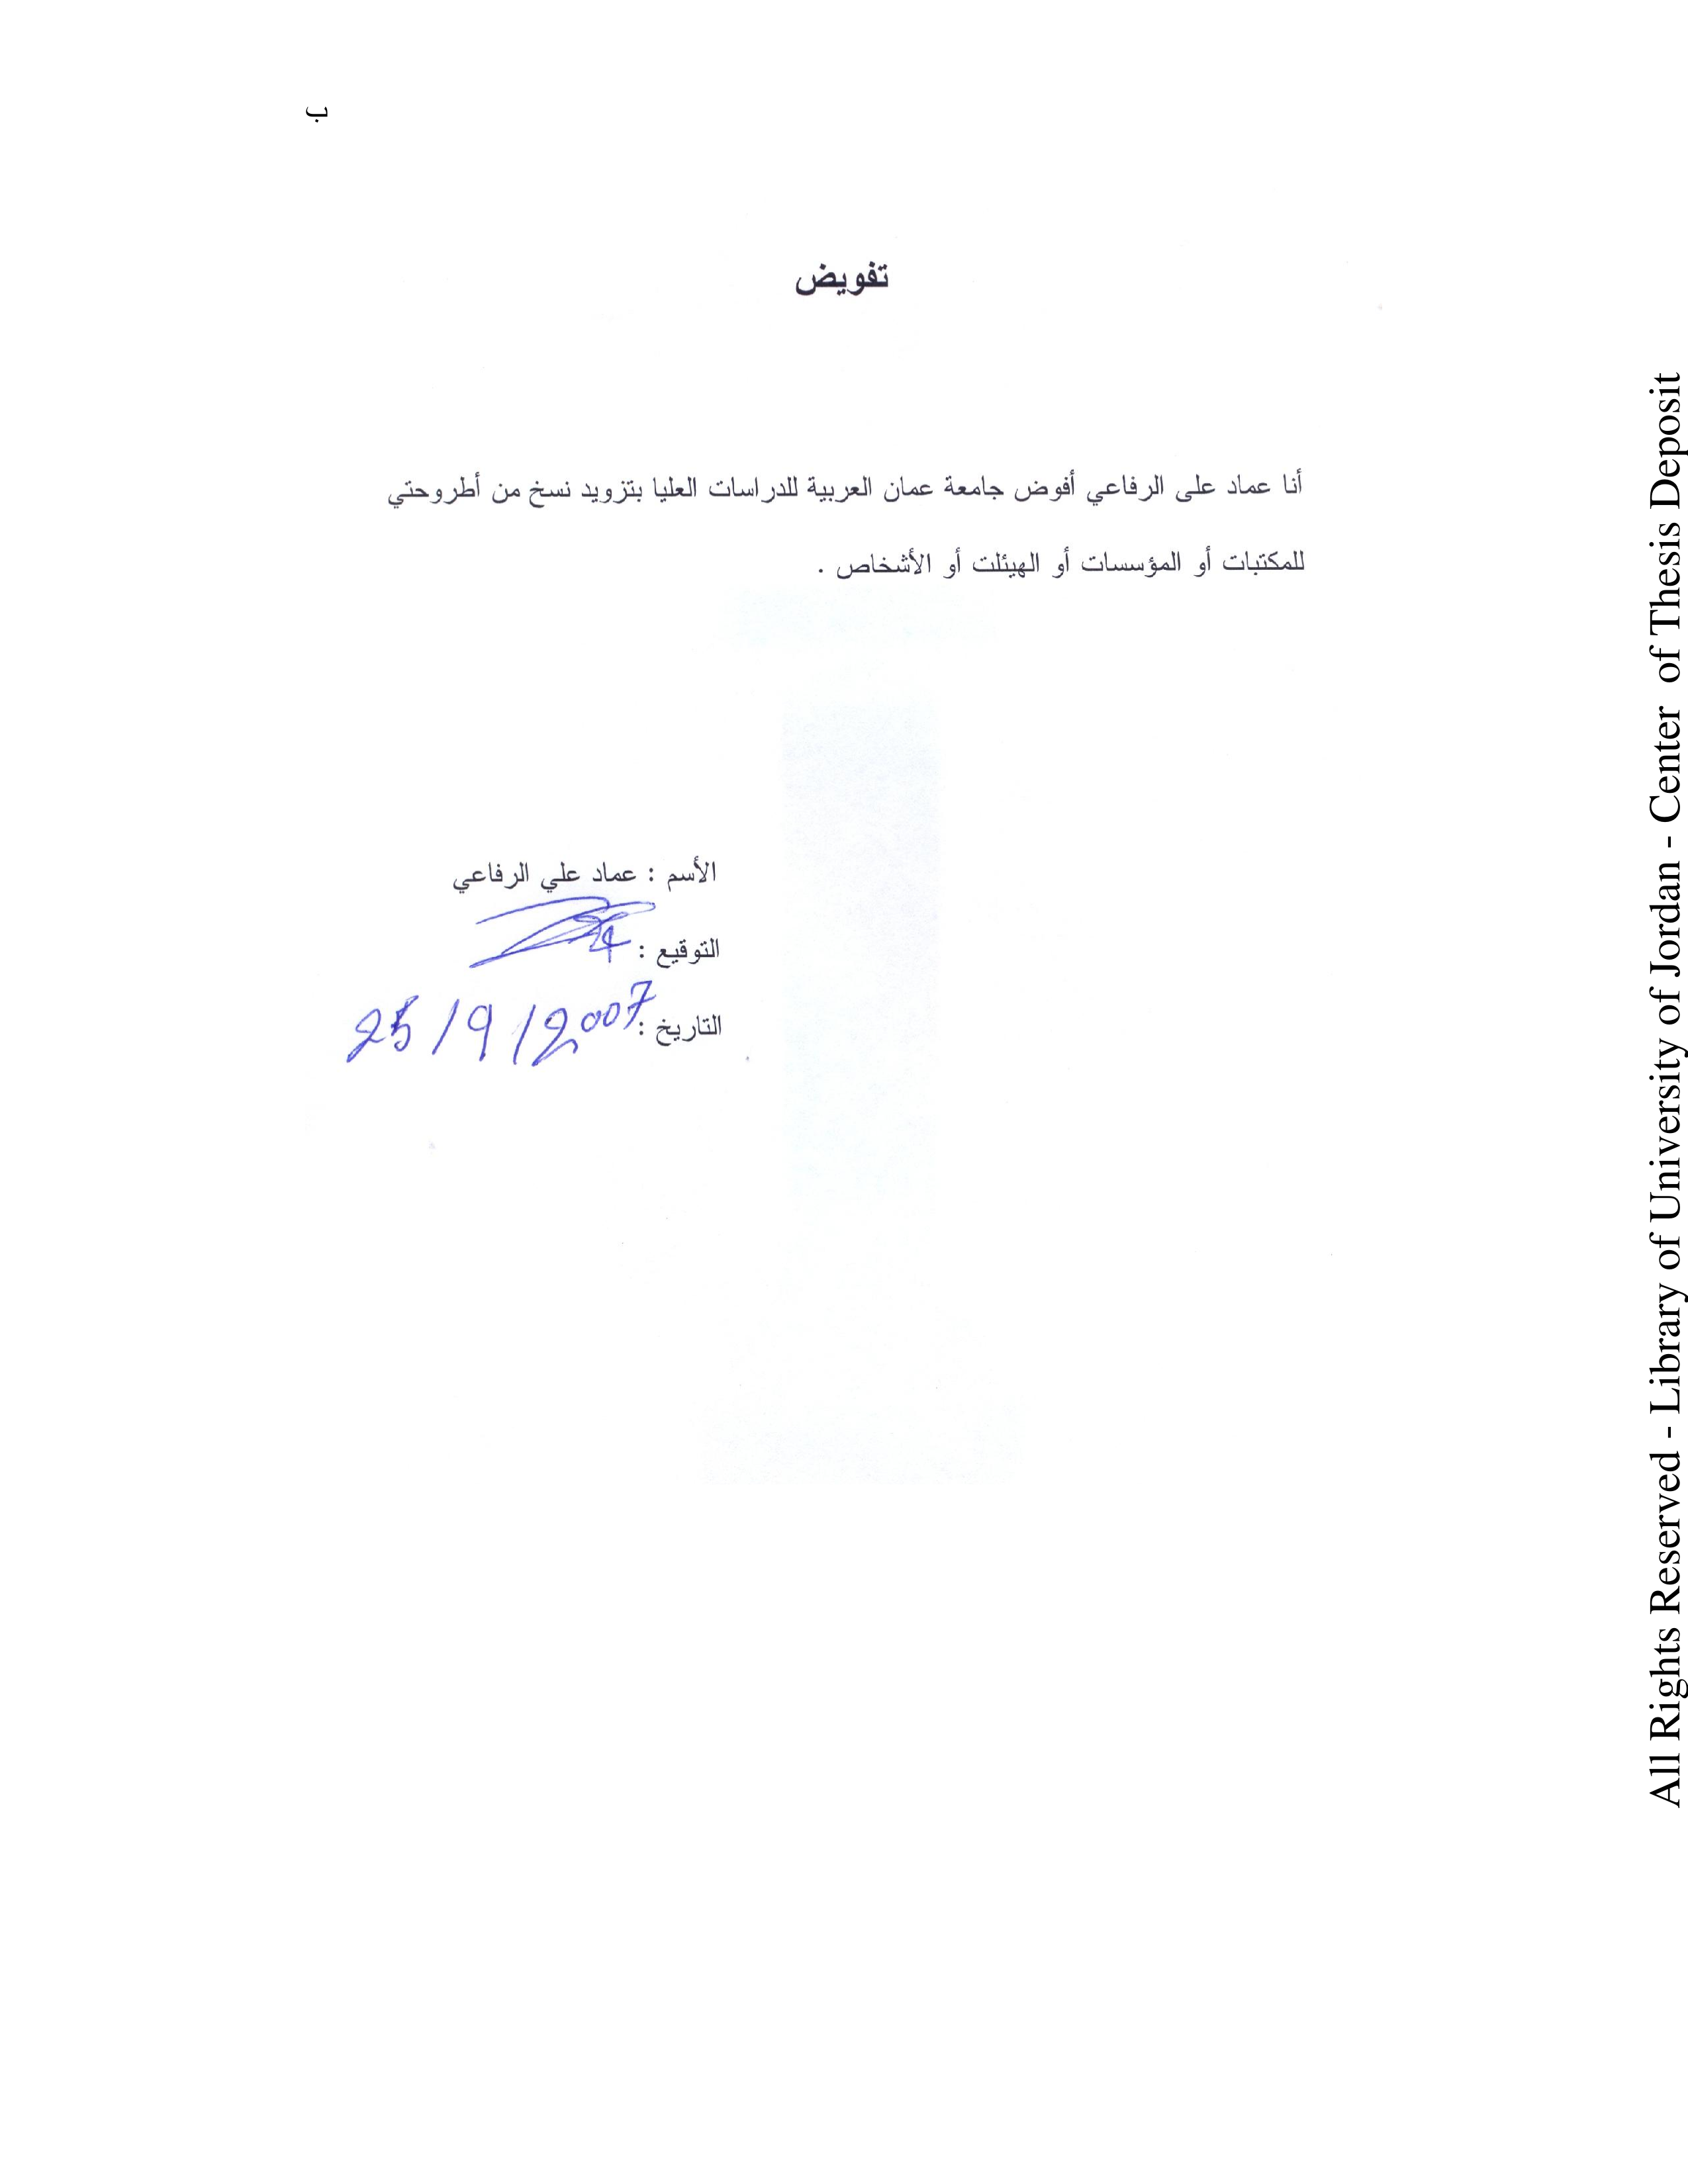 ب
تفويض
أنا عماد على الرفاعي أفوض جامعة عمان العربية للدراسات العليا بتزويد نسخ من أطروحتي
للمكتبات أو المؤسسات أو الهيئلت أو الأشخاص .
الأسم : عماد علي الرفاعي
التوقيع :
التاريخ : 25/9/2007
All Rights Reserved - Library of University of Jordan - Center of Thesis Deposit